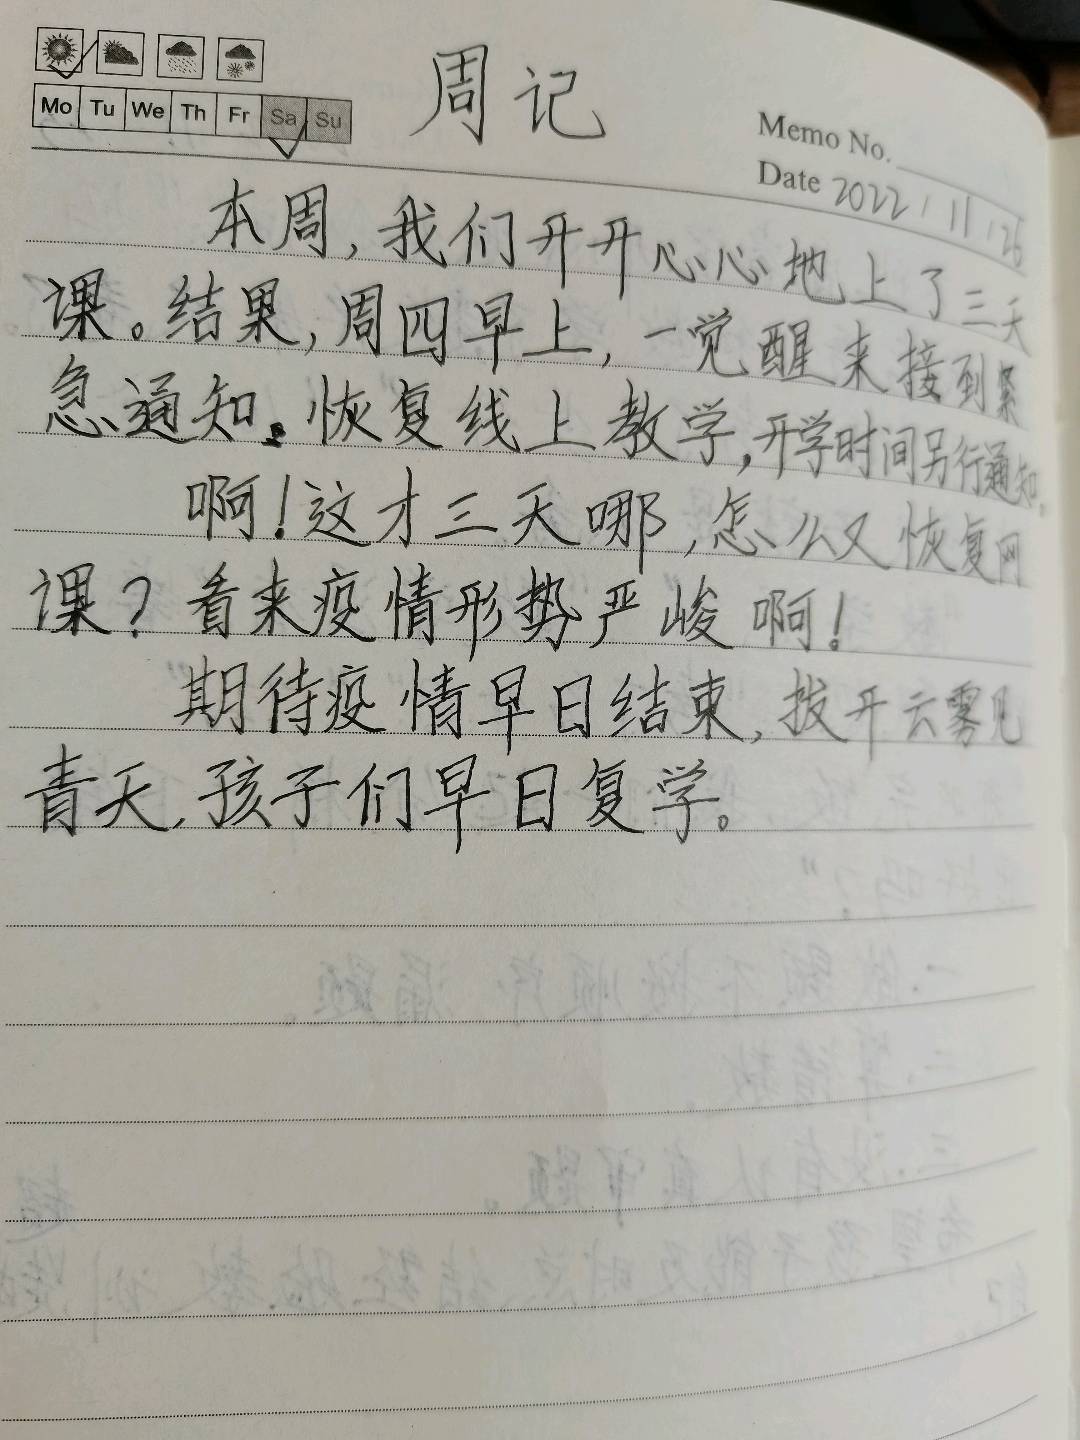 周记
Mo Tu We Th Fr Sa Su
Memo No.
Date 2022/11/26
本周,我们开开心心地上了三天
课。结果,周四早上,一觉醒来接到紧
急通知。恢复线上教学,开学时间另行通知。
啊!这才三天哪,怎么又恢复网
课?看来疫情形势严峻啊!
期待疫情早日结束,拨开云雾见
青天,孩子们早日复学。